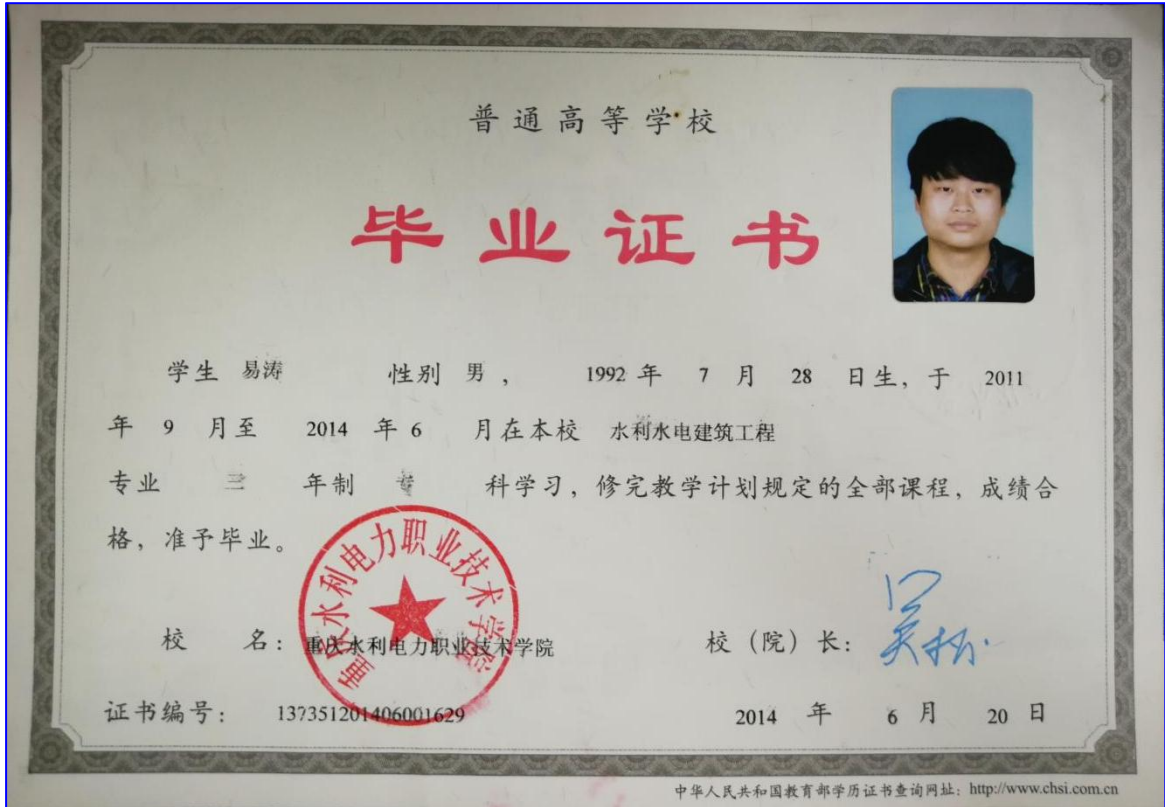 普通高等学校
毕业证书
学生 易涛 性别 男 , 1992 年 7 月 28 日生, 于 2011
年 9 月至 2014 年 6 月在本校 水利水电建筑工程
专业 三 年制 专 科学习, 修完教学计划规定的全部课程, 成绩合
格, 准予毕业。
重庆水利电力职业技术学院
校 名: 重庆水利电力职业技术学院 校 (院) 长: 吴松
证书编号: 137351201406001629 2014 年 6 月 20 日
中华人民共和国教育部学历证书查询网址: http://www.chsi.com.cn